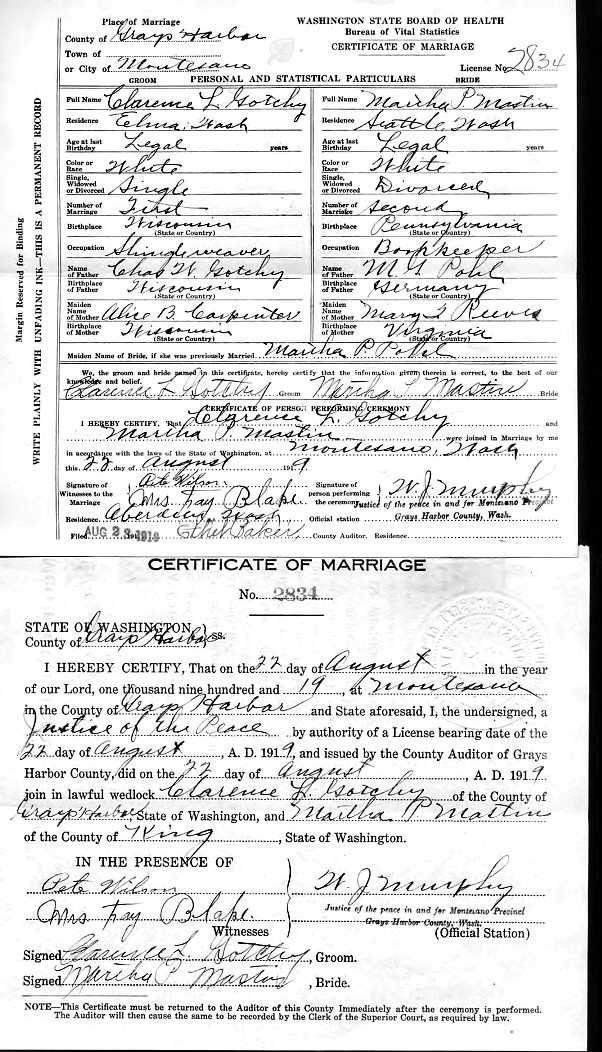 Place of Marriage
County of Grays Harbor
Town of
or City of Montesano
WASHINGTON STATE BOARD OF HEALTH
Bureau of Vital Statistics
CERTIFICATE OF MARRIAGE
License No. 2834
GROOM PERSONAL AND STATISTICAL PARTICULARS BRIDE
Full Name Clarence L Gotchy Full Name Martha P Mastin
Residence Elma, Wash Residence Seattle, Wash
Age at last Birthday Legal years Age at last Birthday Legal years
Color or Race White Color or Race White
Single, Widowed or Divorced Single Single, Widowed or Divorced Divorced
Number of Marriage First Number of Marriage Second
Birthplace Wisconsin Birthplace Pennsylvania
(State or Country) (State or Country)
Occupation Shingleweaver Occupation Bookkeeper
Name of Father Chas W. Gotchy Name of Father M Pohl
Birthplace of Father Wisconsin Birthplace of Father Germany
(State or Country) (State or Country)
Maiden Name of Mother Alice B. Carpenter Maiden Name of Mother Mary Reeves
Birthplace of Mother Wisconsin Birthplace of Mother Virginia
(State or Country) (State or Country)
Maiden Name of Bride, if she was previously Married Martha P. Pohl
We, the groom and bride named in this certificate, hereby certify that the information given therein is correct, to the best of our
knowledge and belief.
Clarence L Gotchy Groom Martha P Mastin Bride
CERTIFICATE OF PERSON PERFORMING CEREMONY
I HEREBY CERTIFY, That Clarence L. Gotchy and
Martha P. Mastin were joined in Marriage by me
in accordance with the laws of the State of Washington, at Montesano, Wash
this 22 day of August 1919
Signature of Witnesses to the Marriage Pete Wilson Signature of person performing the ceremony W. J. Murphy
Mrs Fay Blake Justice of the peace in and for Montesano Precinct
Residence Aberdeen, Wash Official station Grays Harbor County, Wash.
Filed AUG 23 1919 Ethel Baker, County Auditor. Residence
Margin Reserved for Binding
WRITE PLAINLY WITH UNFADING INK—THIS IS A PERMANENT RECORD
CERTIFICATE OF MARRIAGE
No. 2834
STATE OF WASHINGTON
County of Grays Harbor ss.
I HEREBY CERTIFY, That on the 22 day of August in the year
of our Lord, one thousand nine hundred and 19, at Montesano
in the County of Grays Harbor and State aforesaid, I, the undersigned, a
Justice of the Peace by authority of a License bearing date of the
22 day of August, A. D. 1919, and issued by the County Auditor of Grays
Harbor County, did on the 22 day of August, A. D. 1919
join in lawful wedlock Clarence L. Gotchy of the County of
Grays Harbor State of Washington, and Martha P Mastin
of the County of King, State of Washington.
IN THE PRESENCE OF
Pete Wilson W. J. Murphy
Mrs Fay Blake Justice of the peace in and for Montesano Precinct
Grays Harbor County, Wash.
Witnesses (Official Station)
Signed Clarence L. Gotchy, Groom.
Signed Martha P Mastin, Bride.
NOTE—This Certificate must be returned to the Auditor of this County Immediately after the ceremony is performed.
The Auditor will then cause the same to be recorded by the Clerk of the Superior Court, as required by law.